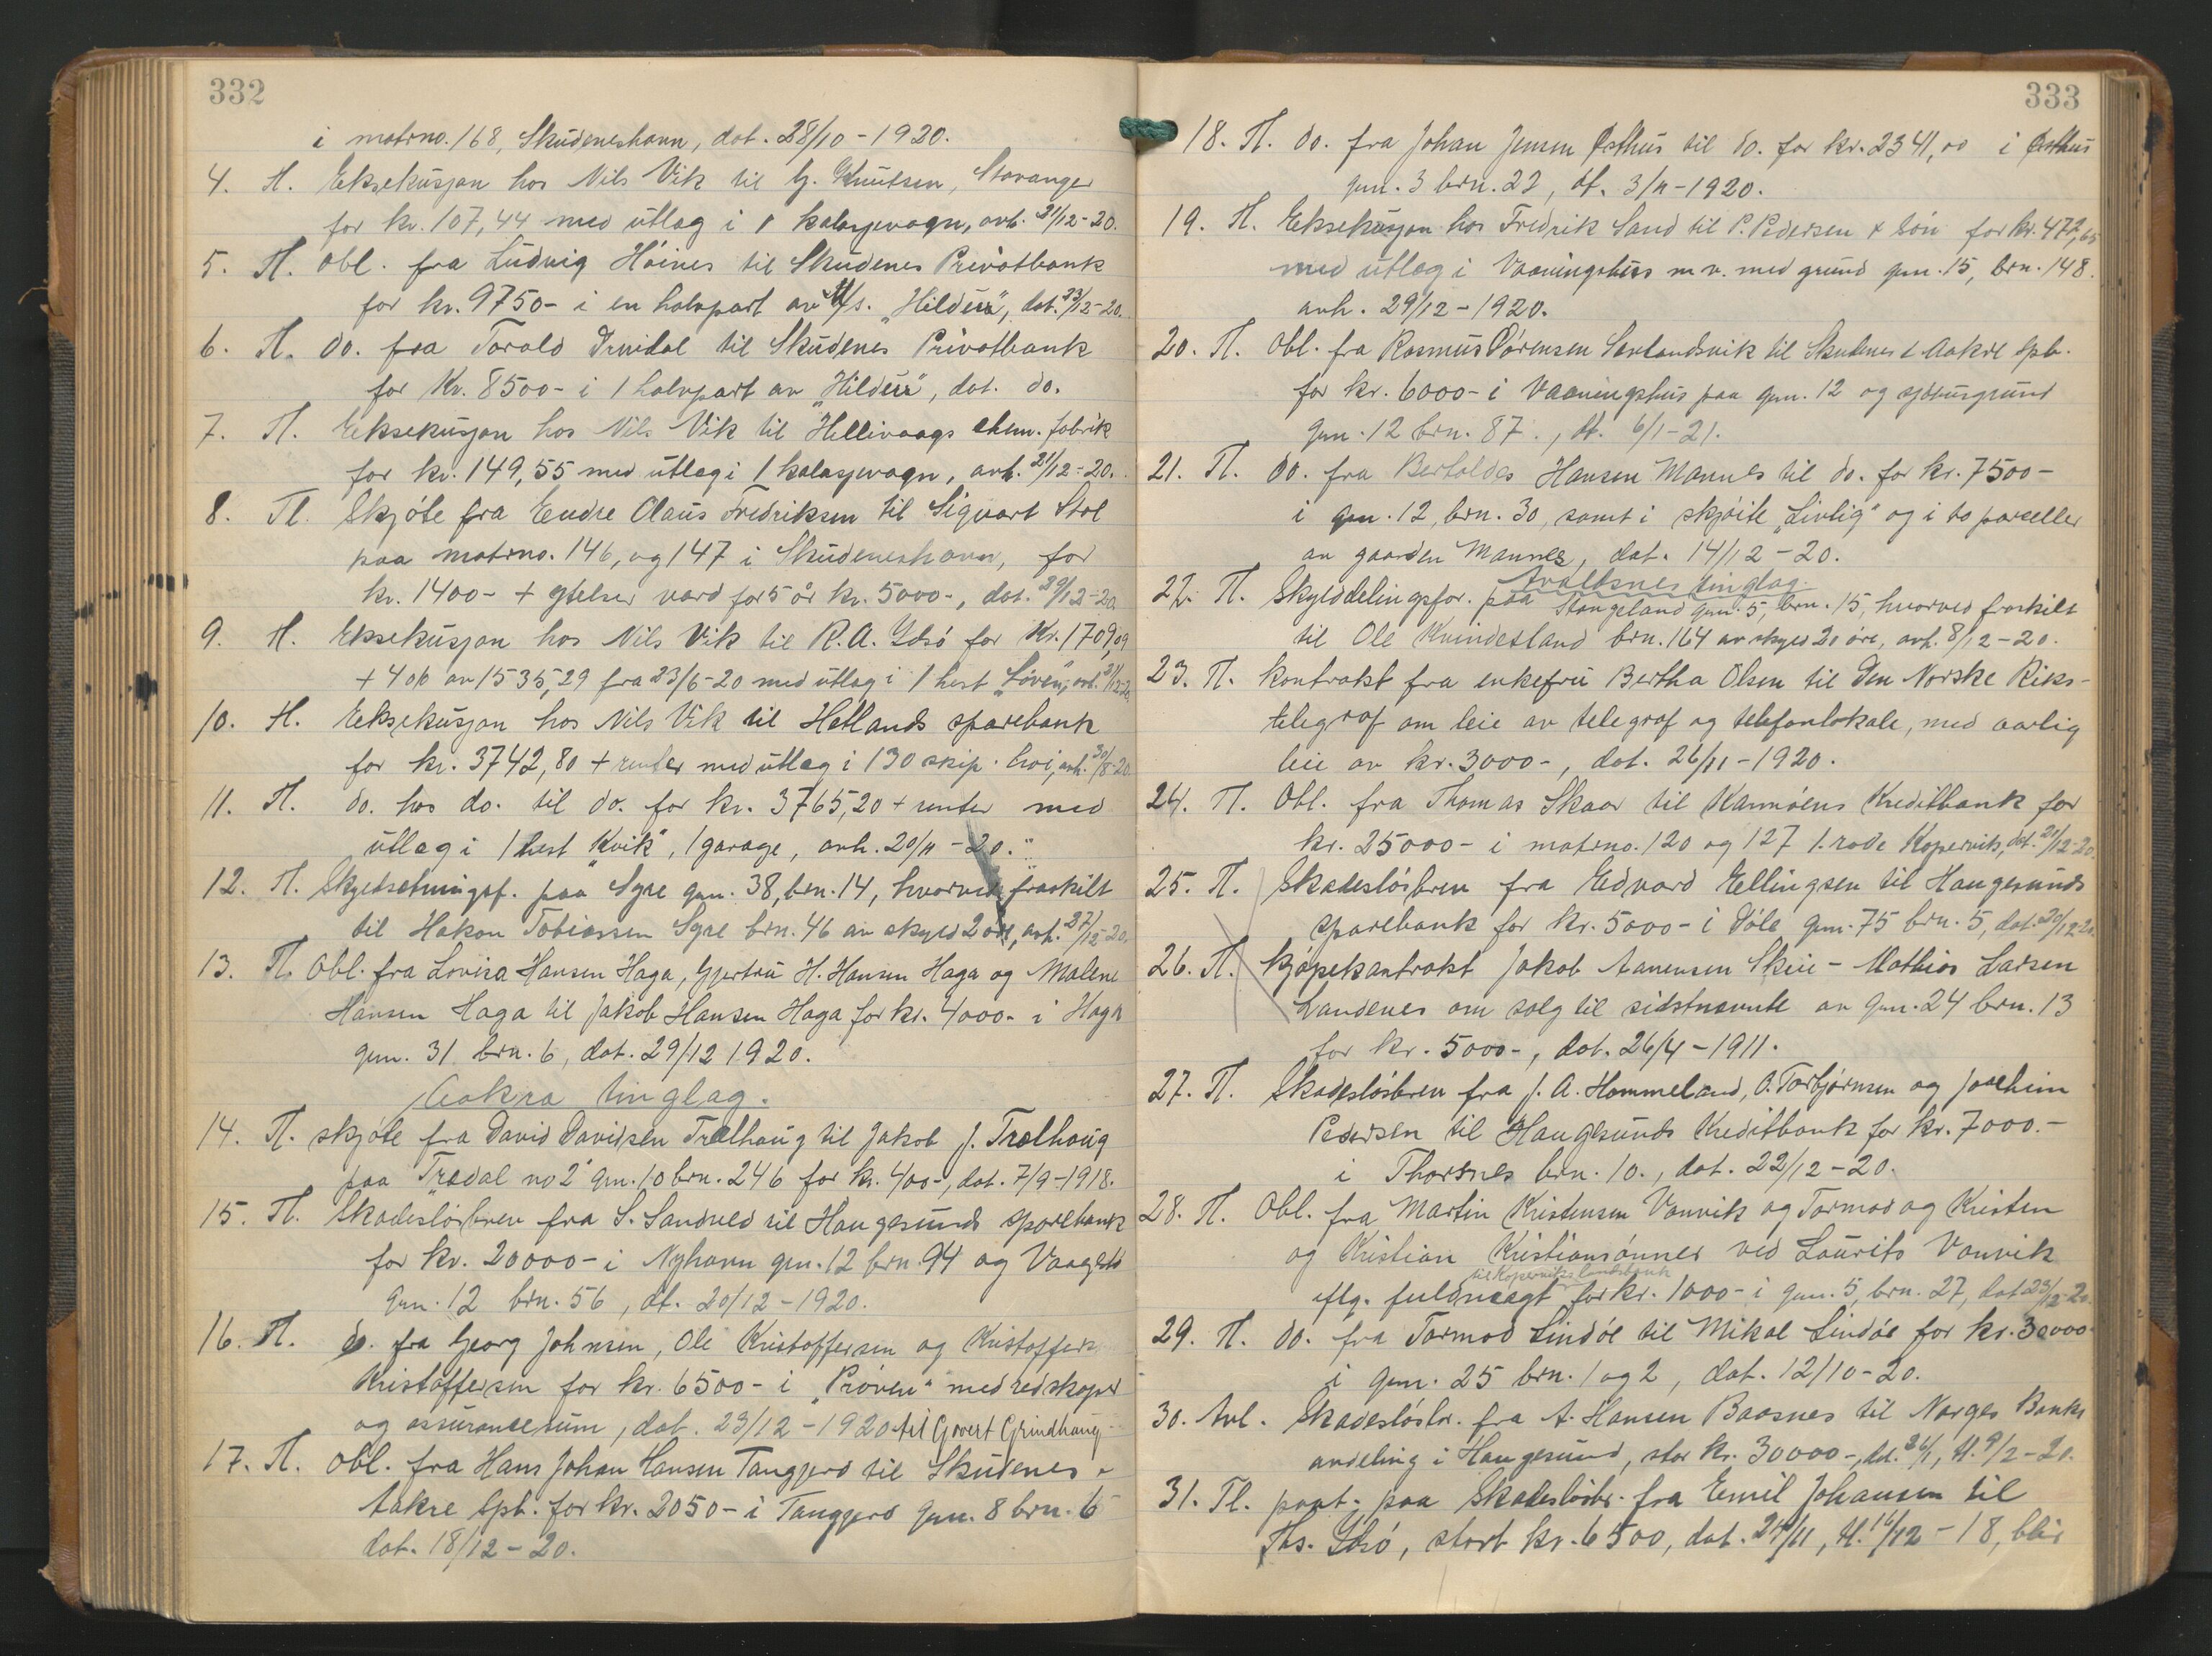 332
i matrno. 168, Skudeneshavn, dat. 28/10-1920.
4. Tl. Eksekusjon hos Nils Vik til G. Knutsen, Stavanger
for kr. 107,44 med utlag i 1 kalasjevogn, avh. 21/12-20.
5. Tl. Obl. fra Ludvig Höines til Skudenes Privatbank
for kr. 9750- i en halvpart av M/s. "Hildur", dat. 23/12-20.
6. Tl. do. fra Torald til Skudenes Privatbank
for Kr. 8500- i 1 halvpart av "Hildur", dat. do.
7. Tl. Eksekusjon hos Nils Vik til Hellivaags chem. fabrik
for kr. 149,55 med utlag i 1 kalasjevogn, avh. 21/12-20.
8. Tl. Skjöte fra Endre Olaus Fredriksen til Sigvart Stol
paa matrno. 146, og 147 i Skudeneshavn, for
kr. 1400- + ytelser værd for 5 år kr. 5000-, dat. 29/12-20.
9. Tl. Eksekusjon hos Nils Vik til R. A. Idsö for Kr. 1709,09
+ 4 o/o av 1535,29 fra 23/6-20 med utlag i 1 hest "Löven", avh. 21/12-20.
10. Tl. Eksekusjon hos Nils Vik til Hetlands sparebank
for kr. 3742,80 + renter med utlag i 130 skip. höi, avh. 30/8-20.
11. Tl. do. hos do. til do. for kr. 3765,20 + renter med
utlag i 1 hest "Kvik", 1 garage, avh. 20/11-20.
12. Tl. Skyldsetningsf. paa Syre gnr. 38, brn. 14, hvorved fraskilt
til Hakon Tobiassen Syre brn. 46 av skyld 2 öre, avh. 27/12-20.
13. Tl. Obl. fra Lovisa Hansen Haga, Gjertru H. Hansen Haga og Malene
Hansen Haga til Jakob Hansen Haga for kr. 4000- i Haga
gnr. 31 brn. 6, dat. 29/12 1920.
Aakra tinglag.
14. Tl. skjöte fra David Davidsen Trælhaug til Jakob J. Trælhaug
paa "Trædal no 2" gnr. 10 brn. 246 for kr. 400-, dat. 7/9-1918.
15. Tl. Skadeslösbrev fra S. Sandved til Haugesunds sparebank
for kr. 20000- i Nyhavn gnr. 12 brn. 94 og
gnr. 12 brn. 56, dt. 20/12-1920.
16. Tl. do. fra Georg Johnsen, Ole Kristoffersen og Kristoffer
Kristoffersen for kr. 6500- i "Pröven" med redskaper
og assurancesum, dat. 23/12-1920 til Govert Grindhaug
17. Tl. Obl. fra Hans Johan Hansen Tangjerd til Skudenes &
Aakre Spb. for kr. 2050- i Tanggjerd gnr. 8 brn. 6
dat. 18/12-20.
333
18. Tl. do. fra Johan Jensen Østhus til do. for kr. 2341,00 i Østhus
gnr. 3 brn. 22, dt. 3/11-1920.
19. Tl. Eksekusjon hos Fredrik Sand til P. Pedersen & Sön for kr. 472,65
med utlag i Vaaningshus m v. med grund gnr. 15, brn. 148.
avh. 29/12-1920.
20. Tl. Obl. fra Rasmus Sörensen Sævlandsvik til Skudenes & Aakre Spb.
for kr. 6000- i Vaaningshus paa gnr. 12 og sjöhusgrund
gnr. 12 brn. 87., dt. 6/1-21.
21. Tl. do. fra Bertoldes Hansen Mannes til do. for kr. 7500-
i gnr. 12, brn. 30, samt i skjöite "Livlig" og i to parceller
av gaarden Mannes, dat. 14/12-20.
Avaldsnes tinglag.
22. Tl. Skylddelingsfor. paa Stangeland gnr. 5, brn. 15, hvorved fraskilt
til Ole Kvindesland brn. 164 av skyld 20 öre, avh. 8/12-20.
23. Tl. kontrakt fra enkefru Bertha Olsen til Den Norske Riks-
telegraf om leie av telegraf og telefonlokale, med aarlig
leie av kr. 3000-, dat. 26/11-1920.
24. Tl. Obl. fra Thomas Skaar til Karmöens Kreditbank for
kr. 25000- i matrno. 120 og 127 1. rode Kopervik, dat. 21/12-20.
25. Tl. Skadeslösbrev fra Edvard Ellingsen til Haugesunds
sparebank for kr. 5000- i Våle gnr. 75 brn. 5, dat. 20/12-20.
26. Tl. kjöpekontrakt Jakob Aanensen Skeie - Mathias Larsen
Landenes om salg til sidstnevnte av gnr. 24 brn. 13
for kr. 5000-, dat. 26/4-1911.
27. Tl. Skadeslösbrev fra J. A. Hammeland, O. Torbjörnsen og Joachim
Pedersen til Haugesunds Kreditbank for kr. 7000.-
i Thorsnes brn. 10., dat. 22/12-20.
28. Tl. Obl. fra Martin Kristensen Vanvik og Tormod og Kristen
og Kristian Kristiansönner ved Laurits Vanvik
til Koperviks landsbank
iflg. fuldmagt for kr. 1000- i gnr. 5, brn. 27, dat 23/12-20.
29. Tl. do. fra Tormod Lindöe til Mikal Lindöe for kr. 30000-
i gnr. 25 brn. 1 og 2, dat. 12/10-20.
30. Avl. Skadeslösbr. fra A. Hansen Baasnes til Norges Banks
avdeling i Haugesund, stor kr. 30000-, dat. 26/1, tl. 9/2-20.
31. Tl. paat. paa Skadeslösbr. fra Emil Johansen til
Ths. Idsö, stort kr. 6500, dat. 29/11, tl. 16/12-18, blir